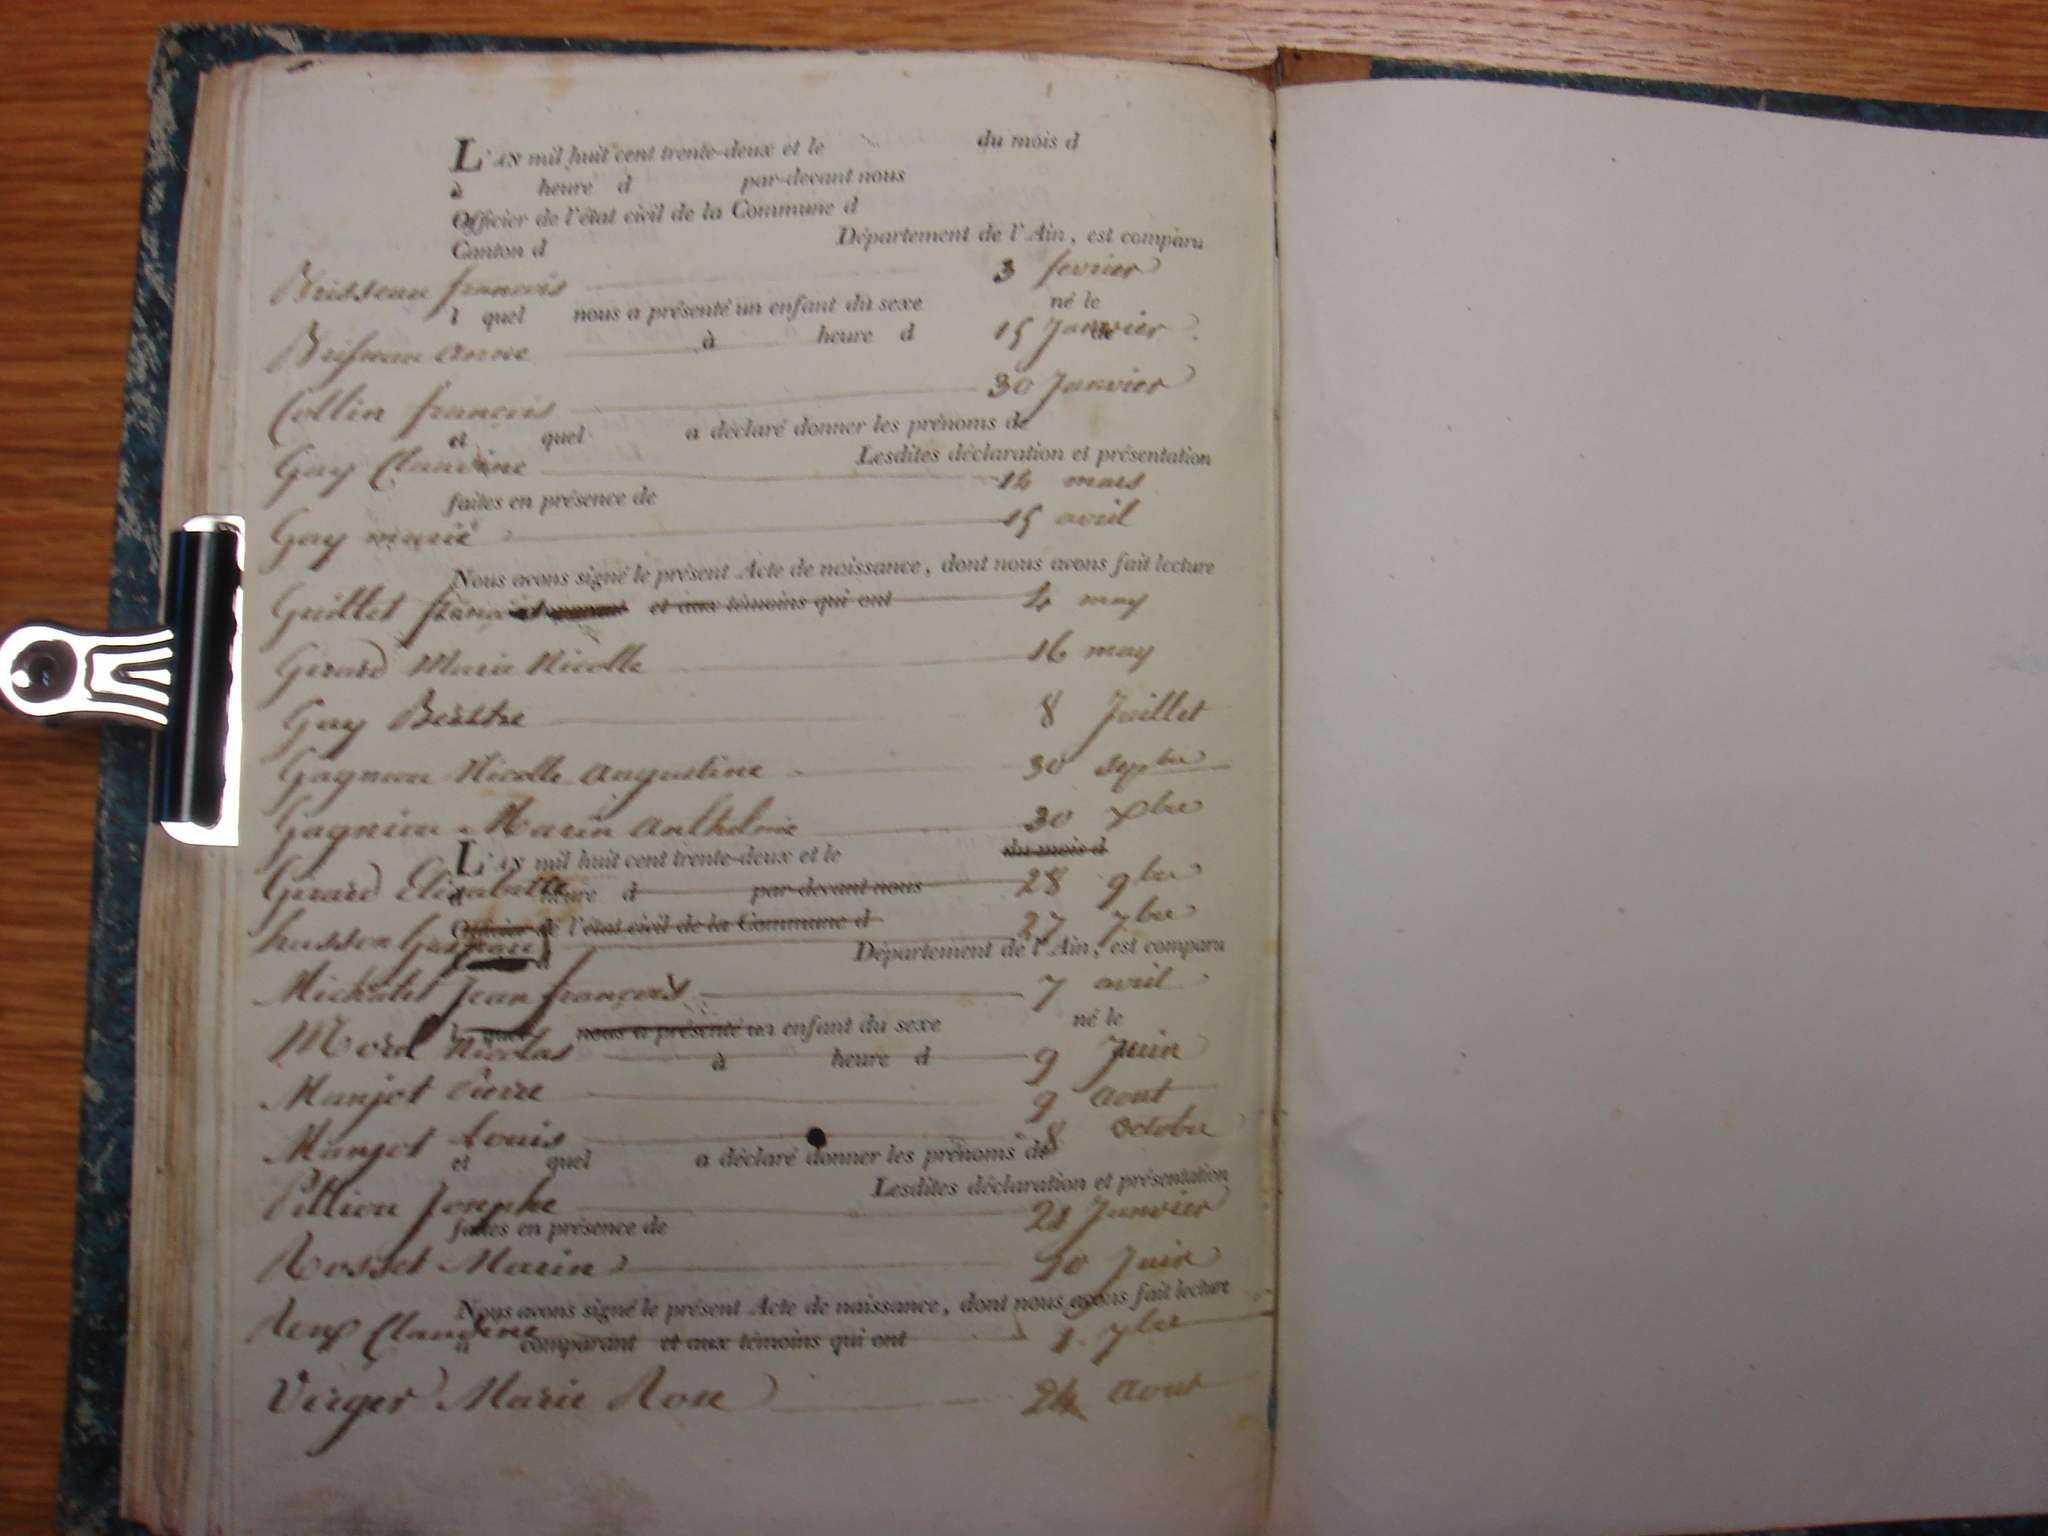 L'AN mil huit cent trente-deux et le du mois d
à heure d par-devant nous
Officier de l'état civil de la Commune d
Canton d Département de l'Ain, est comparu
Brisseau françois 3 fevrier
l quel nous a présenté un enfant du sexe né le
à heure d de
Brisseau anne 15 Janvier
Collin françois 30 Janvier
et quel a déclaré donner les prénoms de
Gay Claudine 14 mars
Lesdites déclaration et présentation
faites en présence de
Gay marie 15 avril
Nous avons signé le présent Acte de naissance, dont nous avons fait lecture
Guillet 4 may
et aux témoins qui ont
Girard Marie Nicolle 16 may
Gay 8 Juillet
Gagnion Nicolle augustine 30 sepbre
Gagnion Marin anthelme 30 xbre
L'AN mil huit cent trente-deux et le du mois d
Girard Elisabette 28 9bre
à heure d par-devant nous
Officier de l'état civil de la Commune d
husson 27 7bre
Département de l'Ain, est comparu
Michalet Jean françois 7 avril
l quel nous a présenté un enfant du sexe né le
Morel Nicolas 9 Juin
à heure d
Manjot Pierre 9 aout
Manjot Louis 8 octobre
et quel a déclaré donner les prénoms de
Lesdites déclaration et présentation
Pittion Josephe 21 Janvier
faites en présence de
Rosset Marin 10 Juin
Nous avons signé le présent Acte de naissance, dont nous avons fait lecture
Claudine 1. 7bre
a comparant et aux témoins qui ont
Virger Marie Rose 24 aout